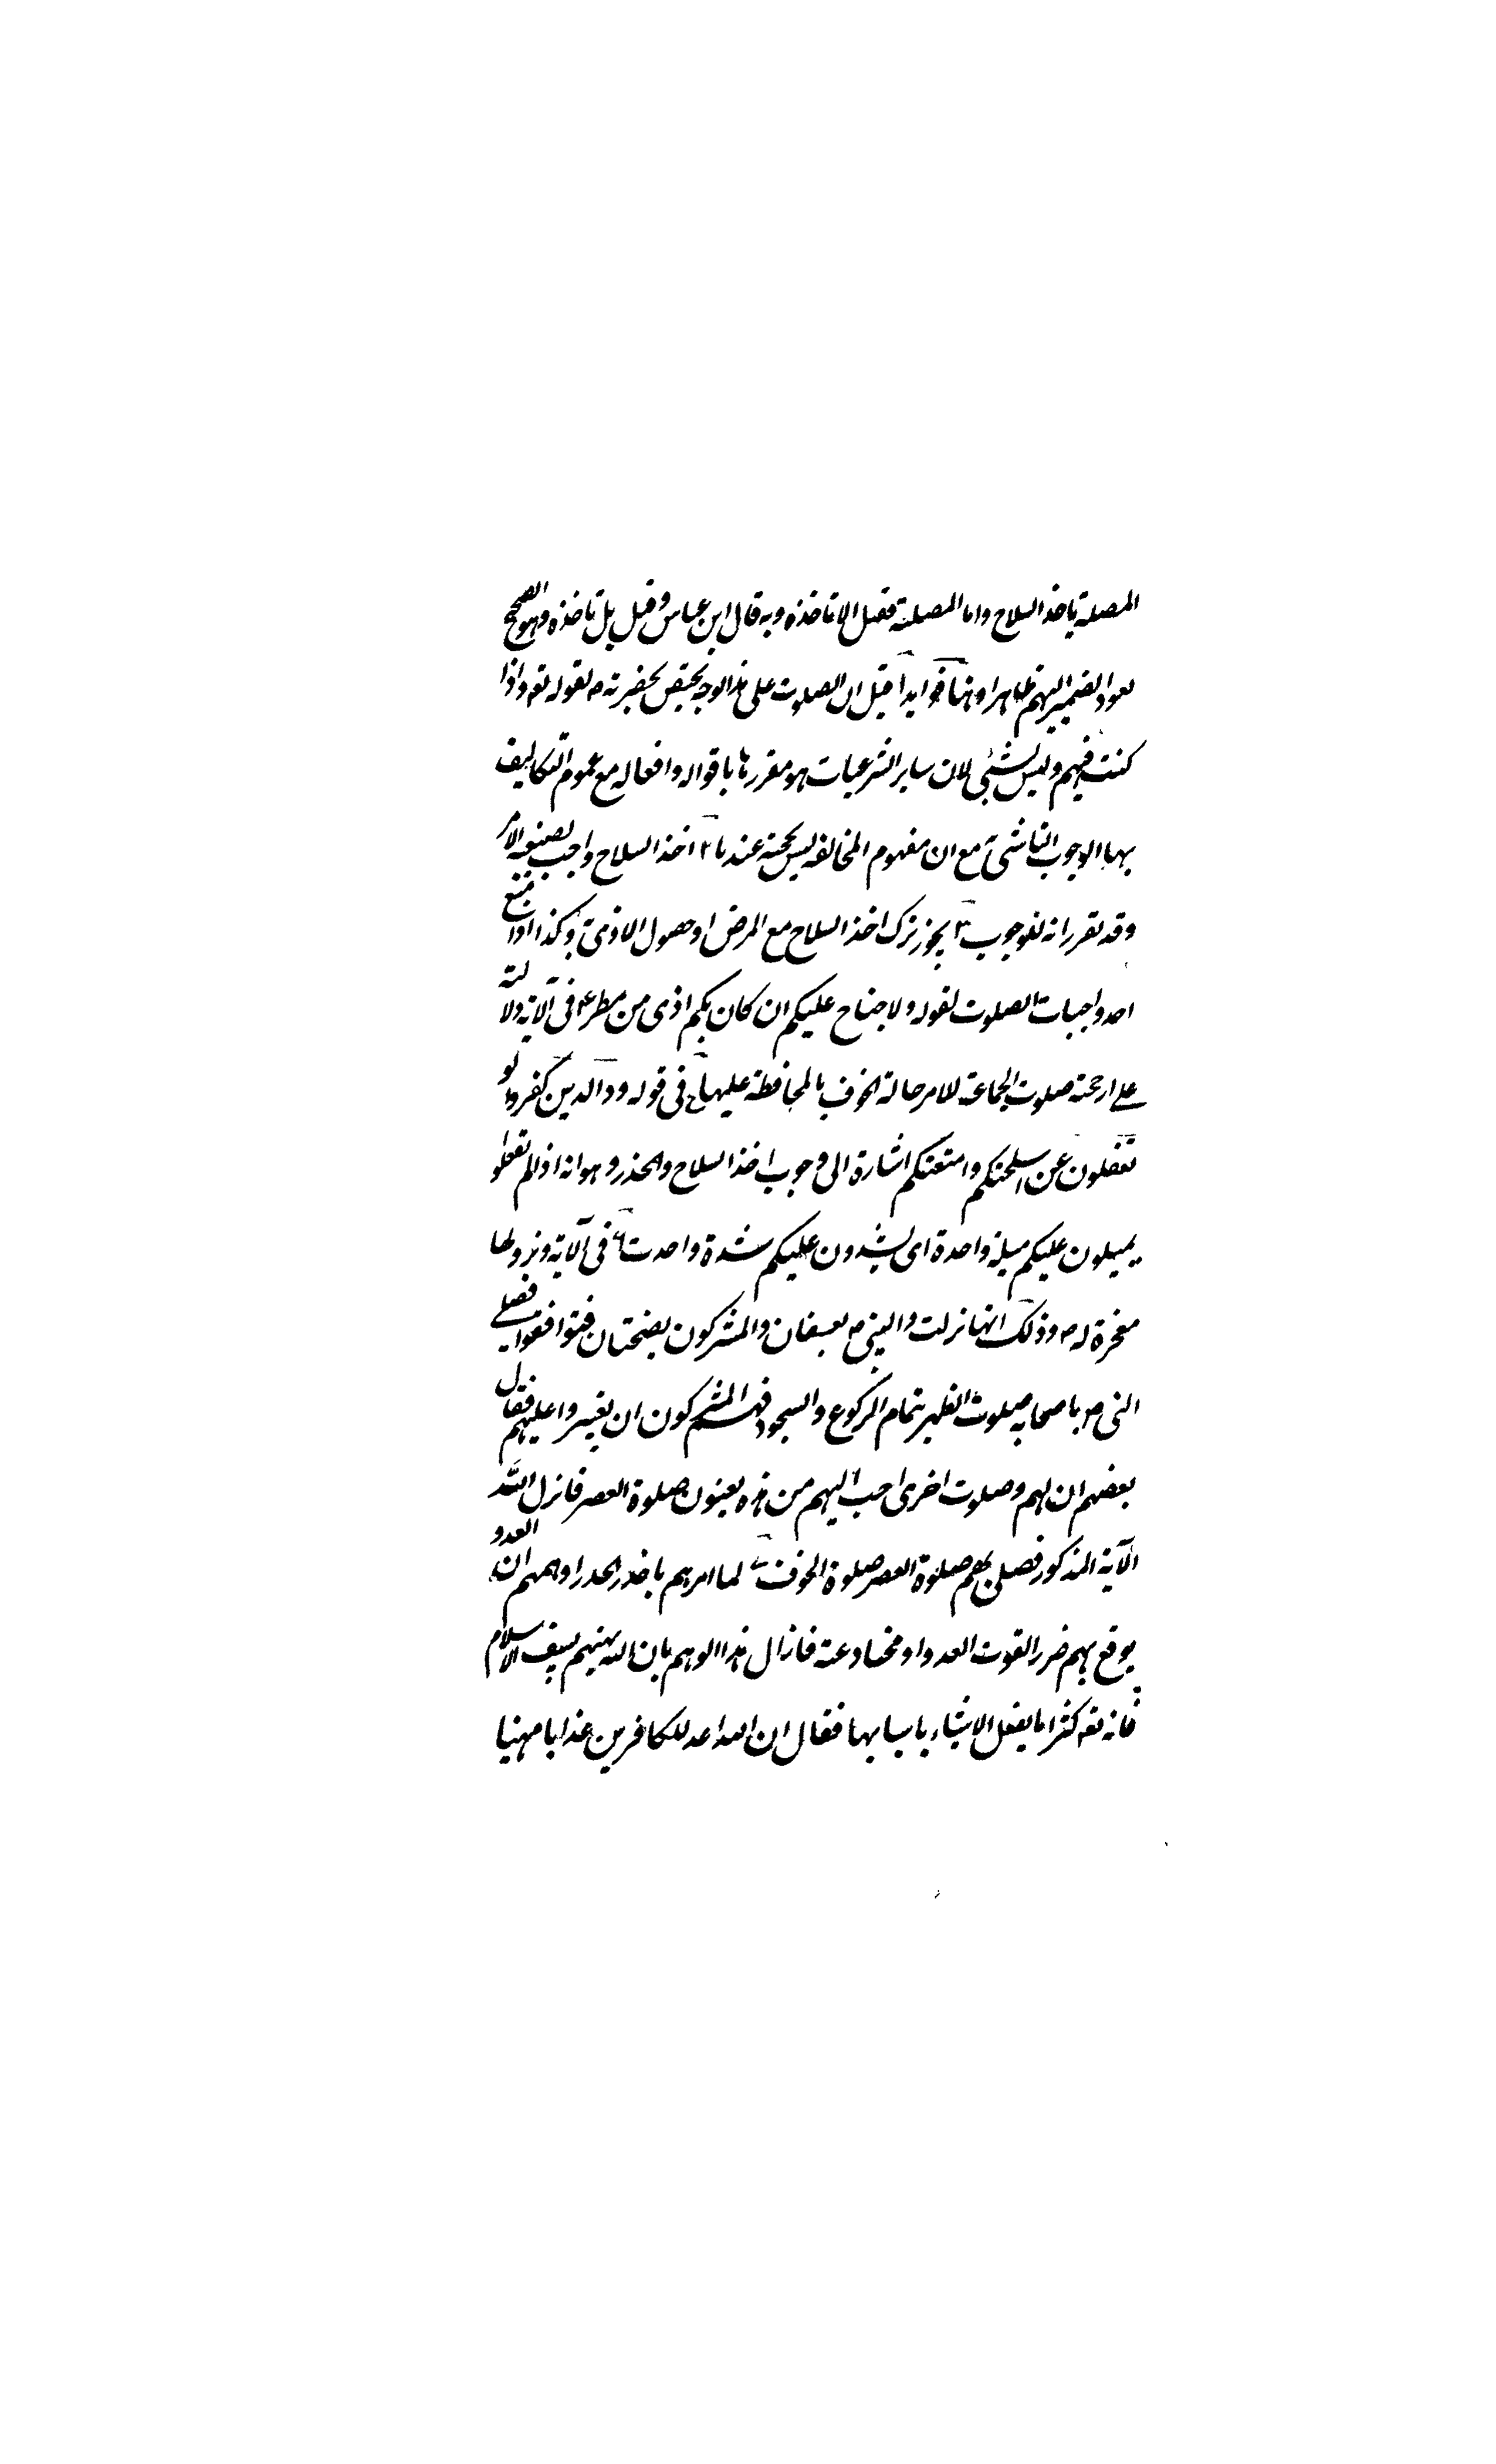 المصلية ياخذ السلاح واما المصلية فقيل لا تاخذه وبه قال ابن عباس وقيل بل تاخذه وهو الصحيح
لعود الضمير اليهم ظاهرا وهنا فوايد ا قيل ان الصلوت على هذا الوجه يختص بحضرته ص لقوله تع واذا
كنت فيهم وليس بشئ لان ساير الشرعيات هو مقررها باقواله وافعاله مع عموم التكاليف
بها لوجوب التاسي مع ان مفهوم المخالفه ليس بحجة عندنا ٢ اخذ السلاح واجب لصيغه الامر
وقد تقرر انه للوجوب ٣ يجوز ترك اخذ السلاح مع المرض او حصول الاذى وكذا اذا منع
احد واجبات الصلوت لقوله ولا جناح عليكم ان كان بكم اذى من مطر ٤ فى الآية دلالة
على ارجحية صلوت الجماعة للامر حالة الخوف بالمحافظة عليها ٥ فى قوله ود الذين كفروا لو
تغفلون عن اسلحتكم وامتعتكم اشارة الى وجوب اخذ السلاح والحذر وهو انه اذا لم تفعلوا
يميلون عليكم ميلة واحدة اى يشدون عليكم شدة واحدت ٦ فى الآية ونزولها
معجزة له ص وذلك انها نزلت والنبى ص بعسفان والمشركون بضجنان فتوافقوا فصلى
النبى ص باصحابه صلوت الظهر بتمام الركوع والسجود فهم المشركون ان يغيروا عليهم فقال
بعضهم ان لهم صلوت اخرى احب اليهم من هذه يعنون صلوة العصر فانزل الله
الآية المذكور فصلى بهم صلوة العصر صلوة الخوف ٧ لما امرهم باخذ الحذر اوهمهم ان العدو
يوقع بهم ضررا لقوت العدد او مخادعة فازال هذا الوهم بان الله يهينهم بسيف الاسلام
فانه تع كثيرا ما يفعل الاشياء باسبابها فقال ان الله اعد للكافرين عذابا مهينا